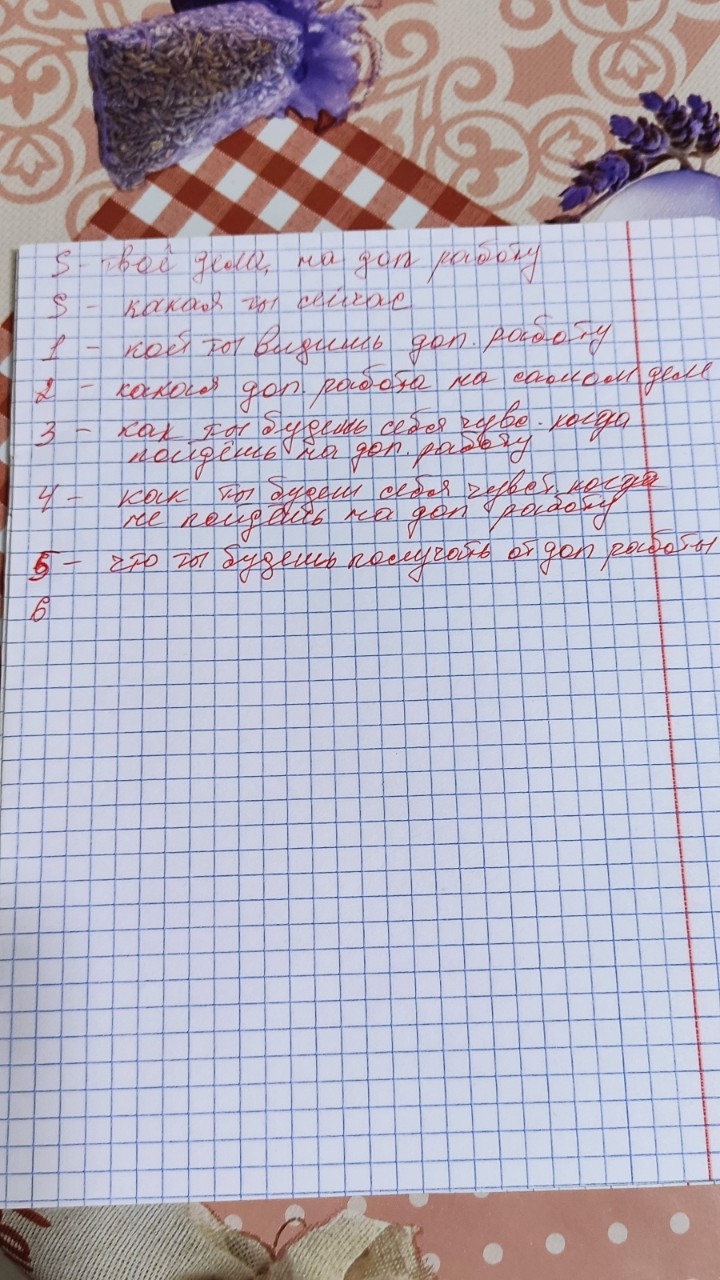 S - твоё дела, на доп работу
S - какая ты сейчас
1 - кай ты видишь доп. работу
2 - какая доп. работа на самом деле
3 - как ты будешь себя чувс. когда
пойдёшь на доп. работу
4 - как ты будеш себя чувст. когда
не пойдёшь на доп работу
5 - что ты будешь получать от доп работы
6